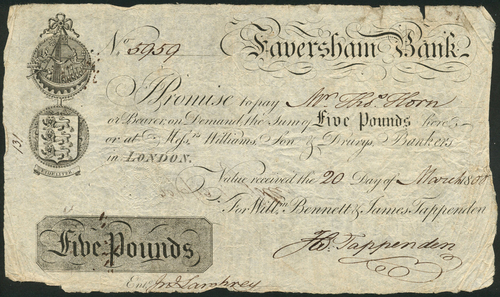 No. 5959 Faversham Bank
I Promise to pay Mr. Thos. Horn
or Bearer, on Demand, the Sum of Five Pounds here
or at Messrs. Williams, Son & Drurys, Bankers
in LONDON.
Value received the 20 Day of March
For Willm. Bennett & James Tappenden
Five Pounds
Tappenden
Entd. Jno. Lamprey